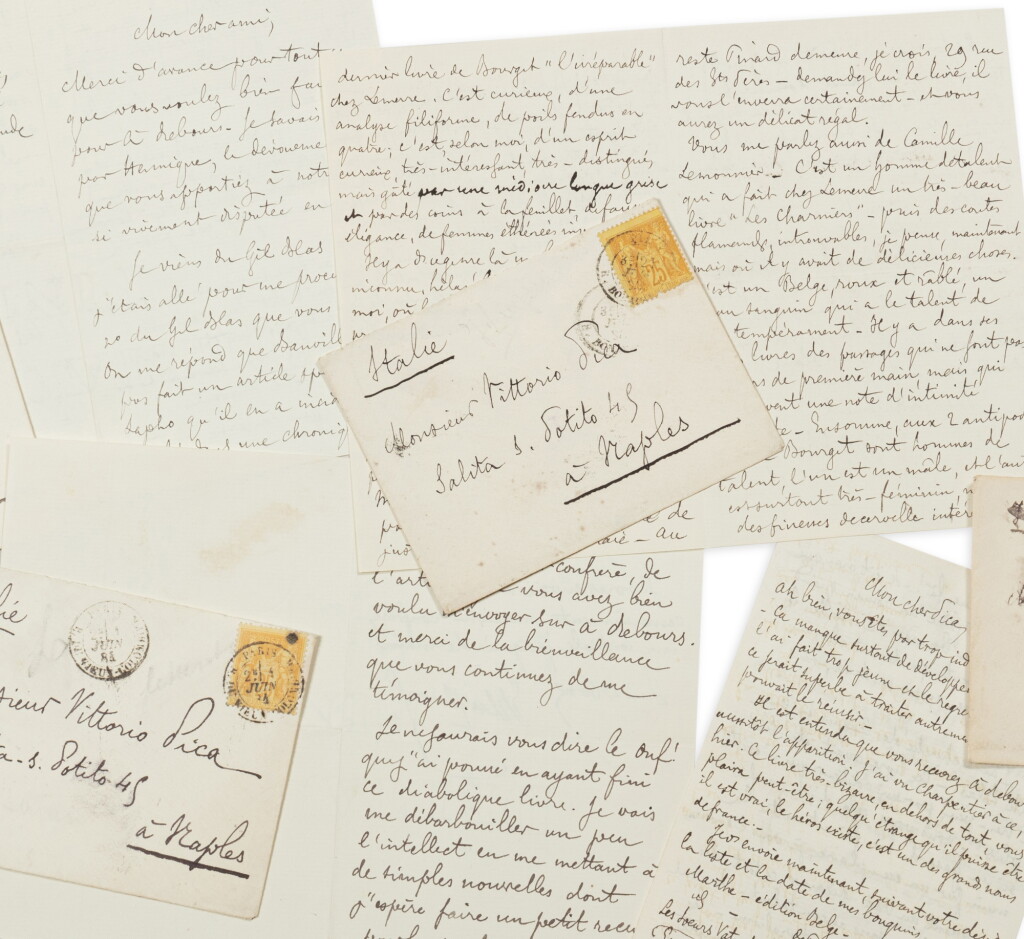 Mon cher ami,
Merci d'avance pour tout
que vous voulez bien fai
pour à Rebours - Je savais
par Hennique, le dévoueme
que vous apportiez à notr
si vivement disputée en
Je viens du Gil Blas
j'étais allé pour me procu
no du Gil Blas que vous
On me répond que Banville
pas fait un article spé
Sapho qu'il en a
une chroniq
dernier livre de Bourget "l'irréparable"
chez Lemerre. C'est curieux, d'une
analyse filiforme, de poils fendus en
quatre; c'est, selon moi, d'un esprit
curieux, très-intéressant, très-distingué,
mais gâté par une médiocre langue grise
et par des coins à la feuillet, di faus
élégance, de femmes éthérées
Il y a du genre là
méconnu, hélas
moi, où
reste Tinard demeure, je crois, 29 rue
des Sts Pères - demandez lui le livre, il
vous l'enverra certainement - et vous
aurez un délicat régal.
Vous me parlez aussi de Camille
Lemonnier - C'est un homme de talent
qui a fait chez Lemerre un très-beau
livre "Les Charniers" - puis des contes
flamands, introuvables, je pense, maintenant
mais où il y avait de délicieuses choses.
'est un Belge, roux et râblé, un
sanguin qui a le talent de
tempérament - Il y a dans ses
livres des passages qui ne sont pas
s de première main, mais qui
vent une note d'intimité
te - En somme, aux 2 antipod
Bourget sont hommes de
talent, l'un est un mâle, et l'aut
est surtout très-féminin,
des finesses de cervelle
Italie
Monsieur Vittorio Pica
Salita S. Potito 45
à Naples
de
- au
confrère, de
l'arti vous avez bien
voulu m'envoyer sur à Rebours.
et merci de la bienveillance
que vous continuez de me
témoigner.
Je ne saurais vous dire le ouf!
que j'ai poussé en ayant fini
ce diabolique livre. Je vais
me débarbouiller un peu
l'intellect en me mettant à
de simples nouvelles dont
j'espère faire un petit recu
lie
sieur Vittorio Pica
ta - S. Potito 45
à Naples
PARIS
JUIN
84
PARIS
JUIN
25
Mon cher Pica,
ah bien, vous êtes par trop ind
- ça manque surtout de développe
l'ai fait trop jeune et le regre
ce serait superbe à traiter autreme
pouvait le réussir -
Il est entendu que vous recevrez à Rebou
aussitôt l'apparition. J'ai vu Charpentier à ce,
hier. Ce livre très-bizarre, en dehors de tout, vous
plaira peut-être; quelqu'étrange qu'il puisse être
il est vrai, le héros existe, c'est un des grands noms
de France. -
Je vs envoie maintenant, suivant votre dési
la liste et la date de mes bouquins
Marthe - édition Belge -
Les Soeurs Vat